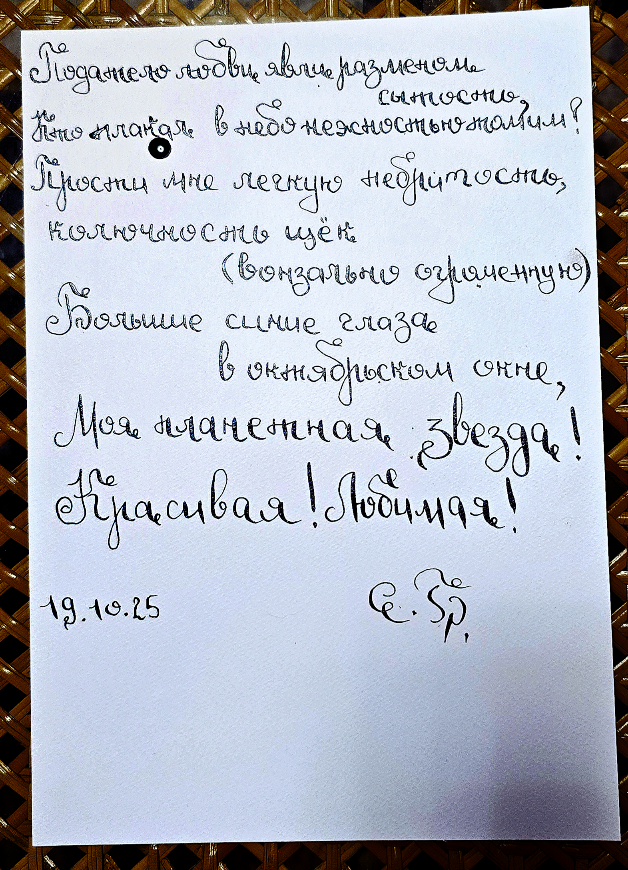 Подажело любви, явли разменом
сытость,
Кто плакал в небо нежностью томим?
Прости мне легкую небритость,
колючность щёк
(вонзально ограненную)
Большие синие глаза
в октябрьском окне,
Моя планетная звезда!
Красивая! Любимая!
19.10.25
С. Гр.